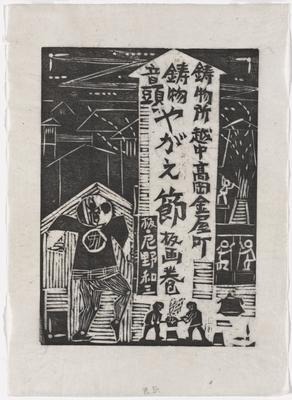 鋳物所越中高岡金屋町
鋳物
音頭やがえ節板画巻
板・尾野和三